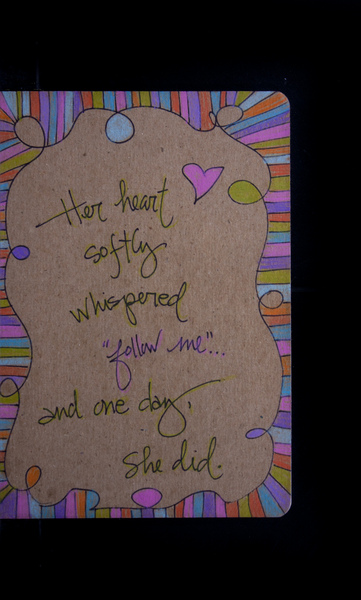 Her heart
softly
whispered
"follow me"...
and one day,
She did.